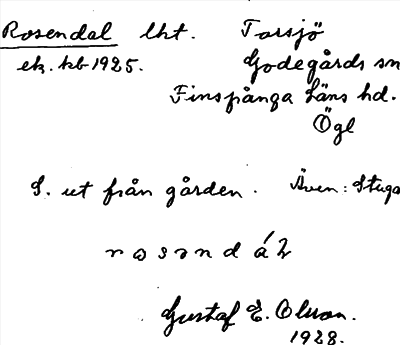 Rosendal lht. Torsjö
ek. kb 1925. Godegårds sn
Finspånga läns hd.
Ögl
S. ut från gården. Även: Stuga
Gustaf E. Olsson.
1928.